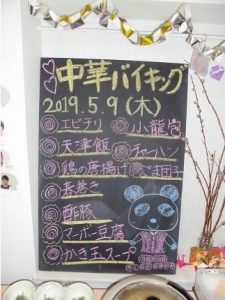 中華バイキング
2019.5.9(木)
エビチリ
天津飯
鶏の唐揚げ
春巻き
酢豚
マーボー豆腐
かき玉スープ
小龍包
チャーハン
ごま団子